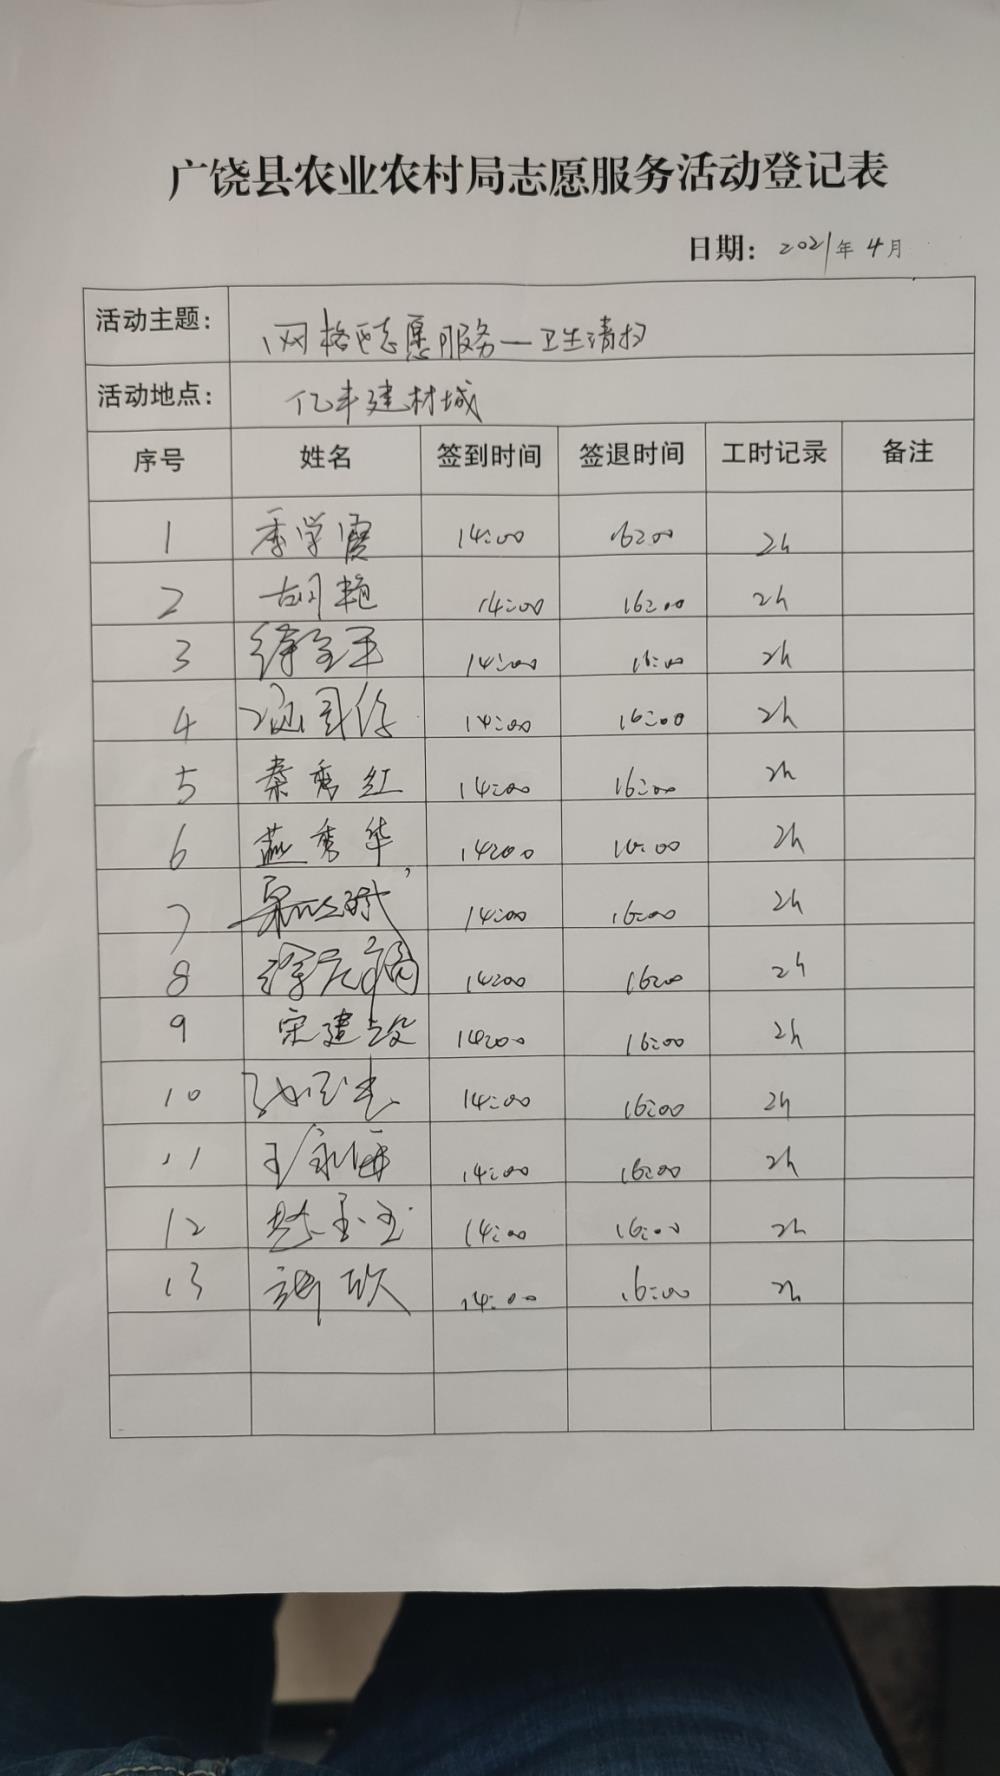 广饶县农业农村局志愿服务活动登记表
日期: 2021年4月
活动主题: 网格区志愿服务—卫生清扫
活动地点: 亿丰建材城
序号 姓名 签到时间 签退时间 工时记录 备注
1 季学霞 14:00 16:00 2h
2 胡艳 14:00 16:00 2h
3 14:00 16:00 2h
4 14:00 16:00 2h
5 秦秀红 14:00 16:00 2h
6 燕秀华 14:00 16:00 2h
7 14:00 16:00 2h
8 14:00 16:00 2h
9 宋建设 14:00 16:00 2h
10 14:00 16:00 2h
11 王永海 14:00 16:00 2h
12 14:00 16:00 2h
13 14:00 16:00 2h